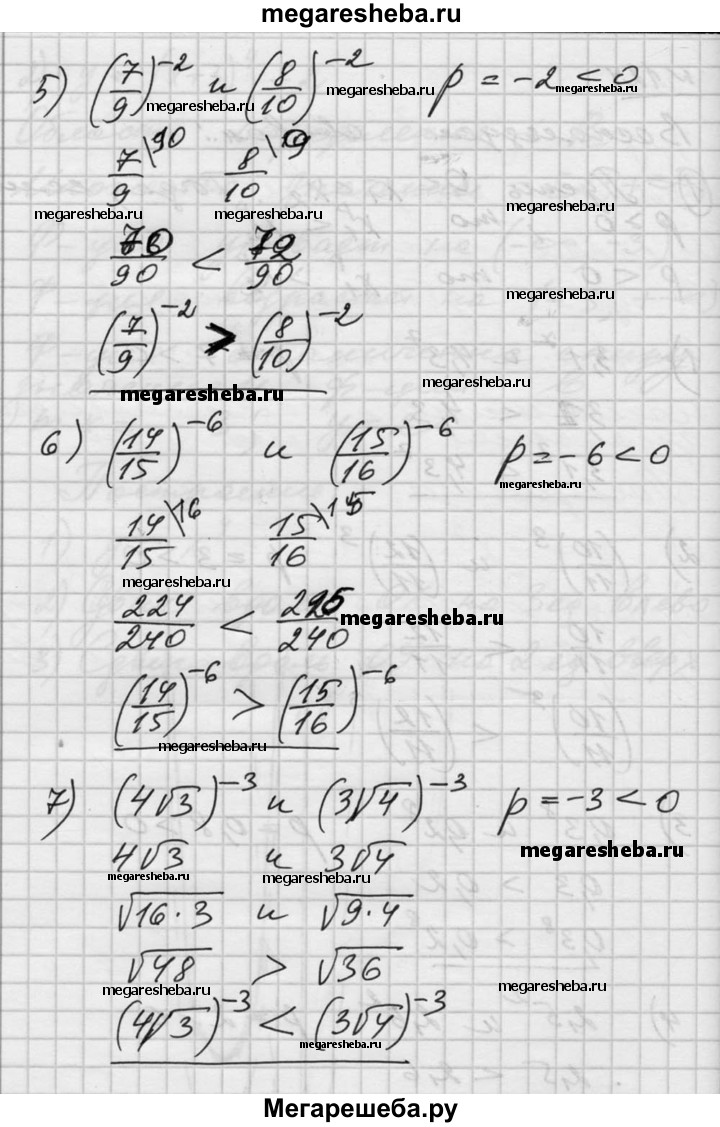 megaresheba.ru
5) (7/9)^-2 и (8/10)^-2 p = -2 < 0
megaresheba.ru megaresheba.ru megaresheba.ru megaresheba.ru
7/9 \10 8/10 \9
megaresheba.ru megaresheba.ru megaresheba.ru
70/90 < 72/90
megaresheba.ru
(7/9)^-2 > (8/10)^-2
megaresheba.ru megaresheba.ru
6) (14/15)^-6 и (15/16)^-6 p = -6 < 0
megaresheba.ru
14/15 \16 15/16 \15
megaresheba.ru
224/240 < 225/240
megaresheba.ru
(14/15)^-6 > (15/16)^-6
megaresheba.ru
7) (4√3)^-3 и (3√4)^-3 p = -3 < 0
megaresheba.ru
4√3 и 3√4
megaresheba.ru megaresheba.ru
√16·3 и √9·4
√48 > √36
megaresheba.ru megaresheba.ru
(4√3)^-3 < (3√4)^-3
megaresheba.ru
Мегарешеба.ру